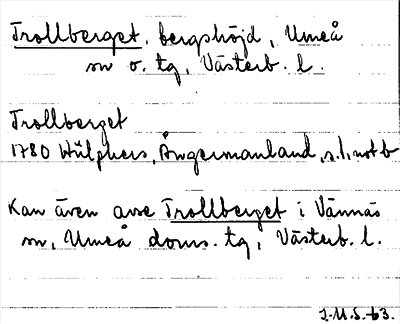 Trollberget, bergshöjd, Umeå
sn o. tg, Västerb. l.
Trollberget
1780 Hülphers, Ångermanland, s. 1, not b
Kan även avse Trollberget i Vännäs
sn, Umeå doms. tg, Västerb. l.
J.M.S.-63.